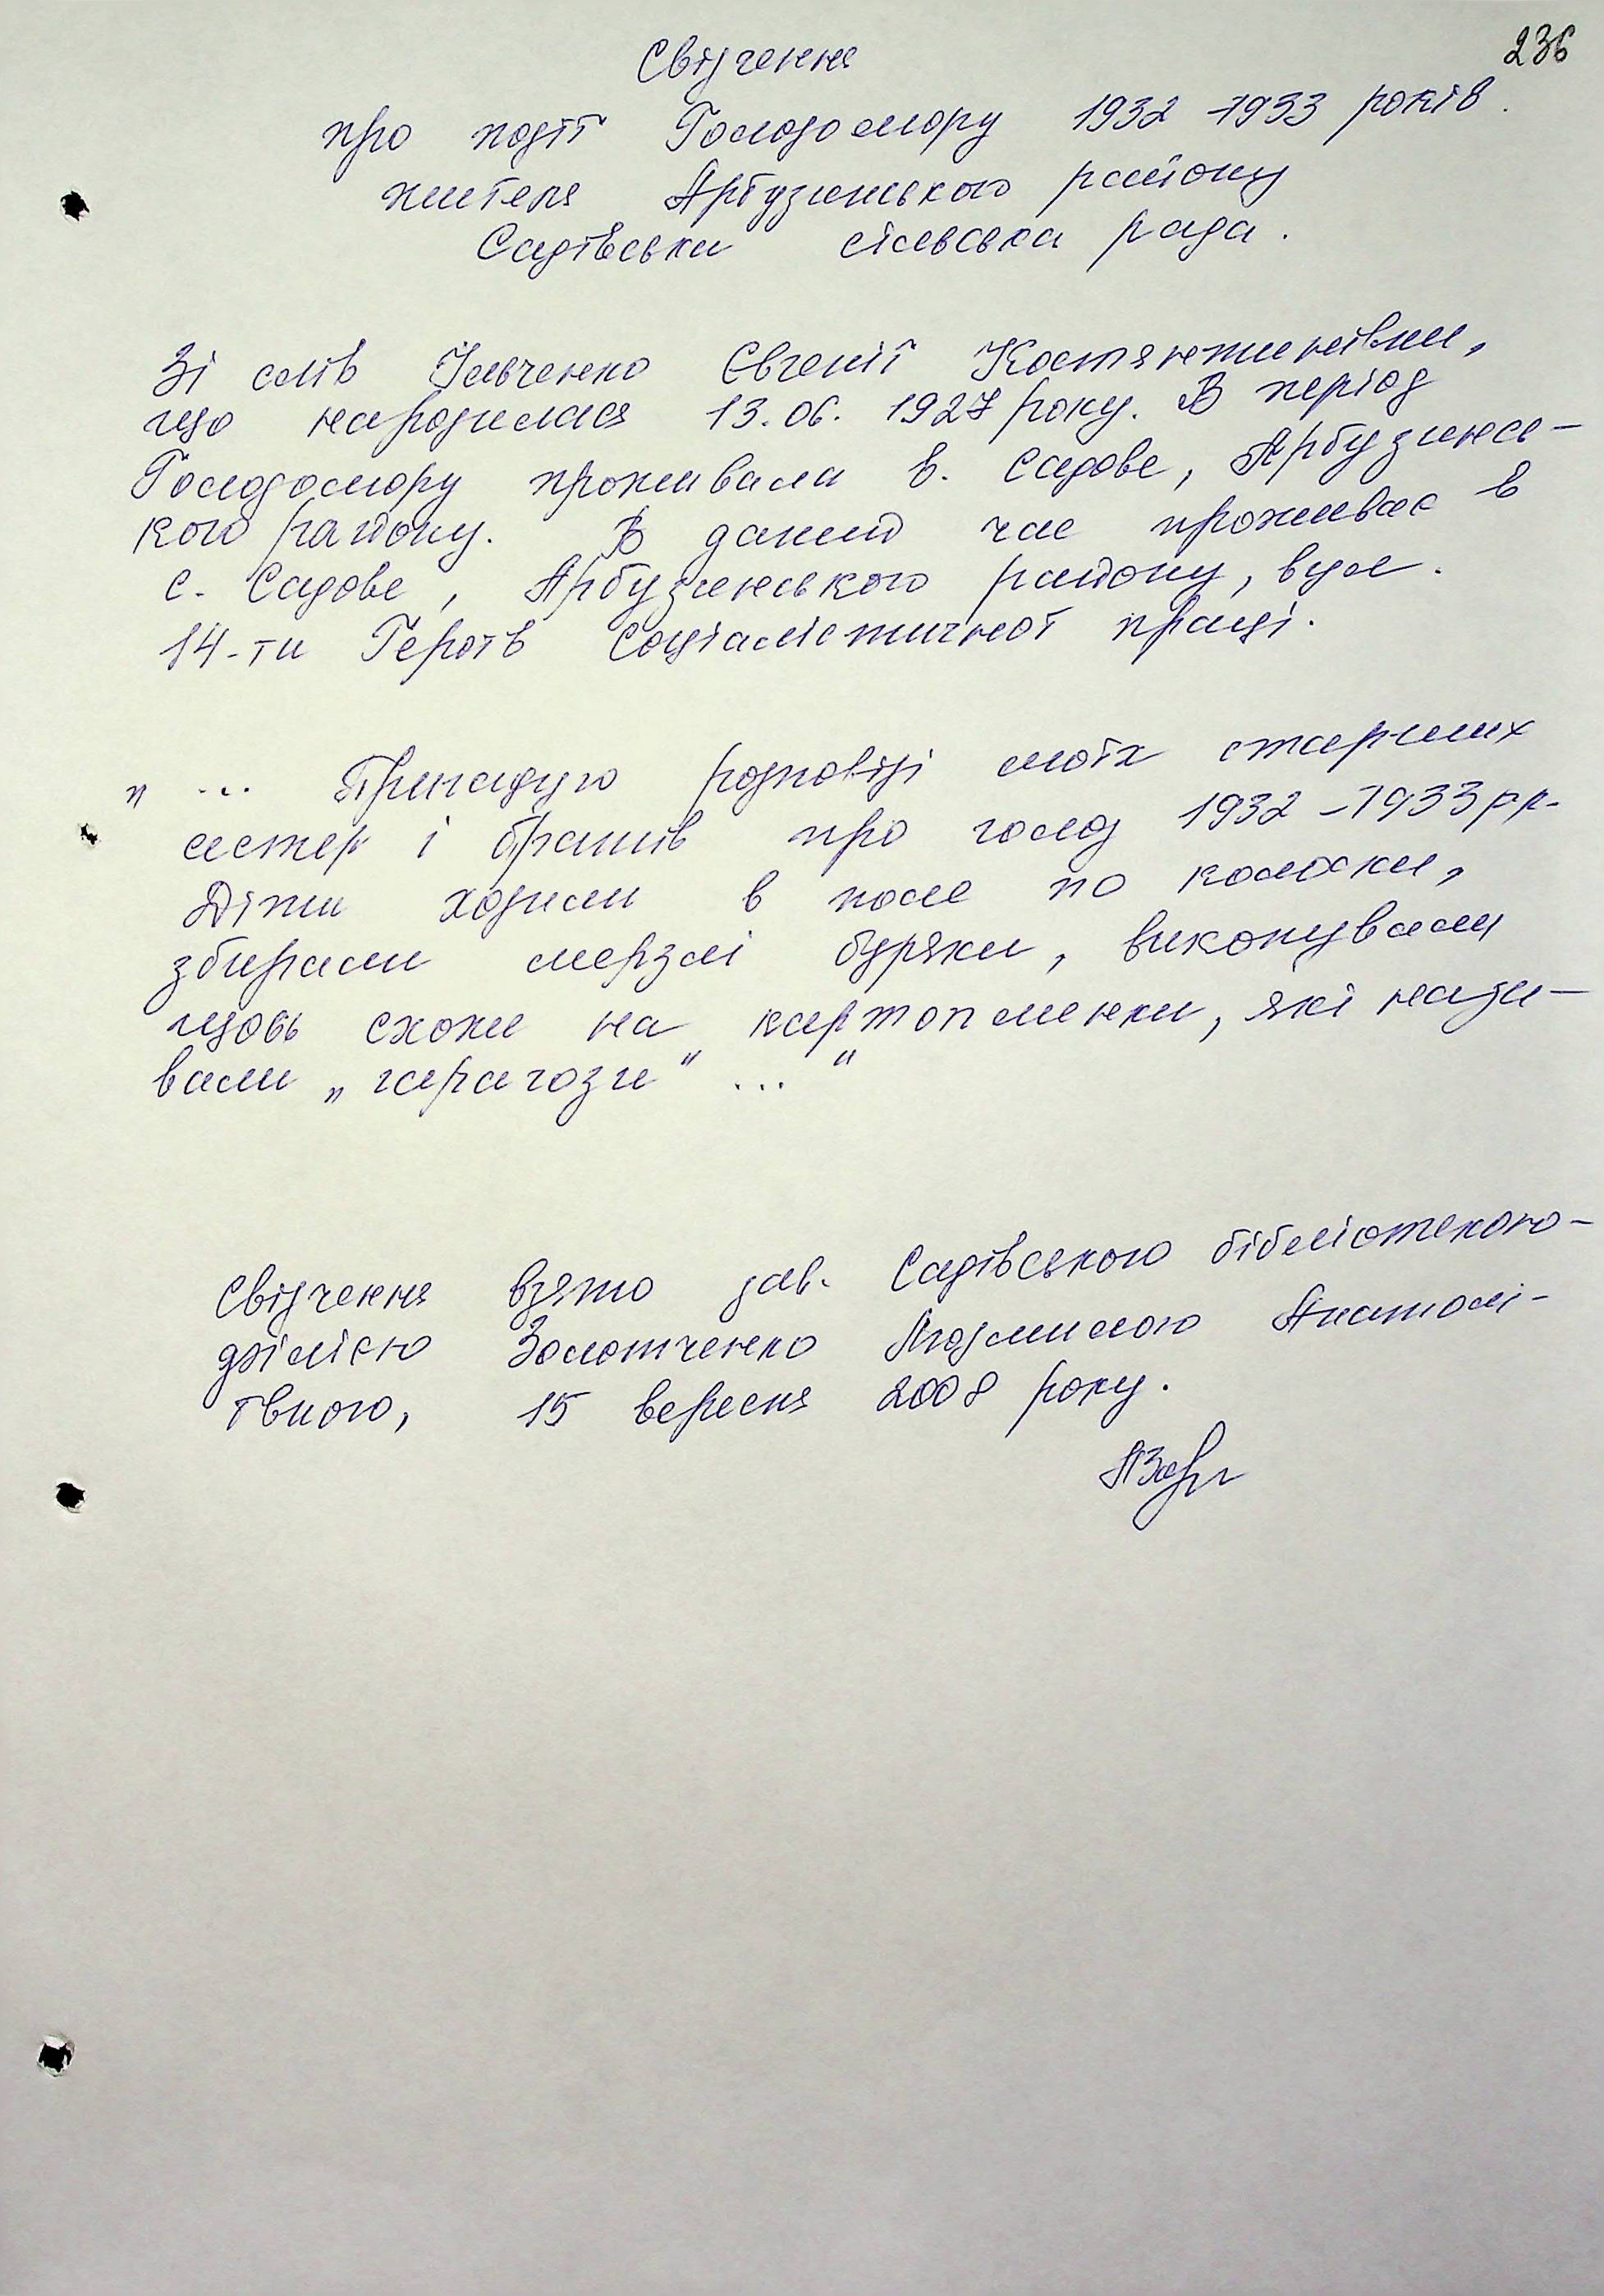 236
Свідчення
про події Голодомору 1932-1933 років.
жителя Арбузинського району
Садівська сільська рада.
Зі слів Євгенії Костянтинівни,
що народилася 13.06.1927 року. В період
Голодомору проживала в. Садове, Арбузинсь-
кого району. В даний час проживає в
с. Садове, Арбузинського району, вул.
14-ти Героїв Соціалістичної праці.
„ ... Пригадую розповіді моїх старших
сестер і братів про голод 1932-1933 рр.
Діти ходили в поле по колоски,
збирали мерзлі буряки, викопували
щось схоже на картопленки, які нази-
вали „гарагози“ ... “
Свідчення взято зав. Садівського бібліотекою-
філією Золотченко Людмилою Анатолі-
ївною, 15 вересня 2008 року.